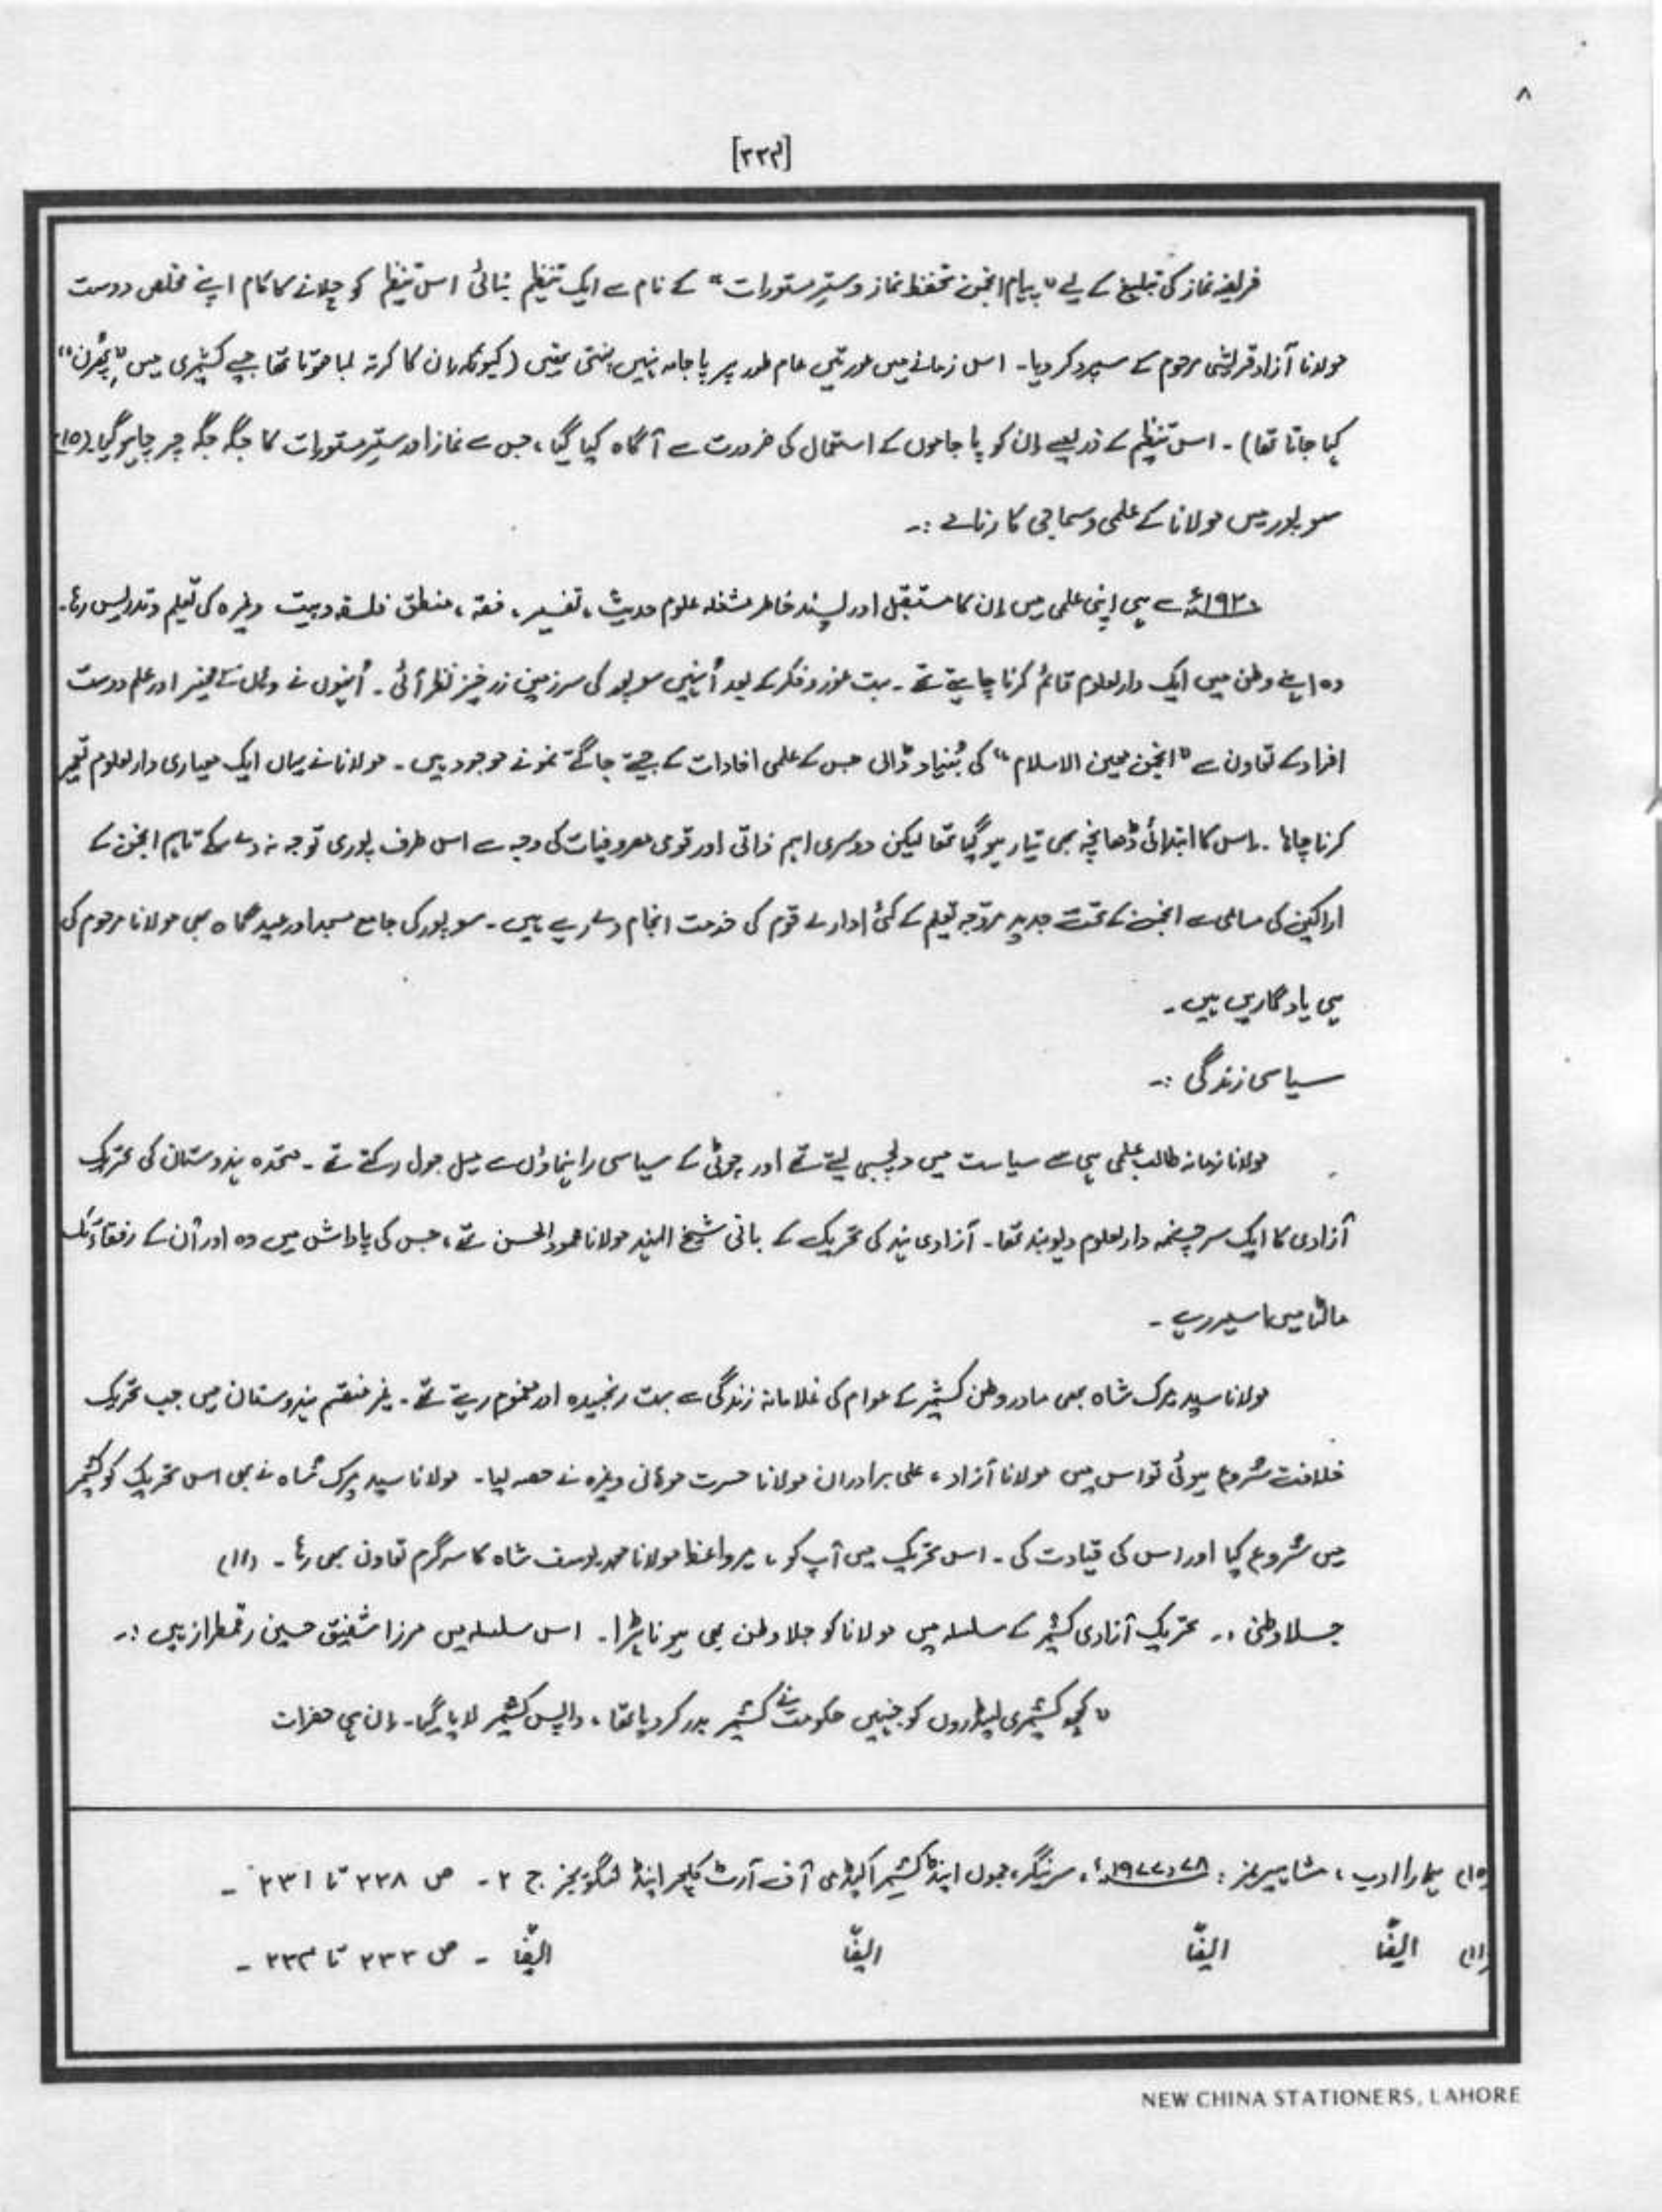 ۸
[۲۳۴]
فریضہ نماز کی تبلیغ کے لیے "پیام انجمن تحفظ نماز و سترِ مستورات" کے نام سے ایک تنظیم بنائی اس تنظیم کو چلانے کا کام اپنے مخلص دوست
مولانا آزاد قریشی مرحوم کے سپرد کر دیا۔ اس زمانے میں عورتیں عام طور پر پاجامہ نہیں پہنتی تھیں (کیونکہ ان کا کرتہ لمبا ہوتا تھا جسے کشمیری میں "پھرن"
کہا جاتا تھا)۔ اس تنظیم کے ذریعے ان کو پاجاموں کے استعمال کی ضرورت سے آگاہ کیا گیا، جس سے نماز اور سترِ مستورات کا جگہ جگہ چرچا ہو گیا۔ (۱۵)
سوپور میں مولانا کے علمی و سماجی کارنامے :۔
سے ہی اپنی علمی میں ان کا مستقبل اور پسند خاطر مشغلہ علوم حدیث، تفسیر، فقہ، منطق فلسفہ وہیت وغیرہ کی تعلیم و تدریس رہا۔
وہ اپنے وطن میں ایک دارلعلوم قائم کرنا چاہتے تھے۔ بہت غور و فکر کے بعد اُنہیں سوپور کی سرزمین زرخیز نظر آئی۔ اُنہوں نے وہاں کے مخیر اور علم دوست
افراد کے تعاون سے "انجمن معین الاسلام" کی بُنیاد ڈالی جس کے علمی افادات کے جیتے جاگتے نمونے موجود ہیں۔ مولانا نے یہاں ایک معیاری دارلعلوم تعمیر
کرنا چاہا۔ اس کا ابتدائی ڈھانچہ بھی تیار ہو گیا تھا لیکن دوسری اہم ذاتی اور قومی مصروفیات کی وجہ سے اس طرف پوری توجہ نہ دے سکے تاہم انجمن کے
اراکین کی مساعی سے انجمن کے تحت جدید مروّجہ تعلیم کے کئی ادارے قوم کی خدمت انجام دے رہے ہیں۔ سوپور کی جامع مسجد اور عیدگاہ بھی مولانا مرحوم کی
ہی یادگاریں ہیں۔
سیاسی زندگی :۔
مولانا زمانہ طالب علمی ہی سے سیاست میں دلچسپی لیتے تھے اور چوٹی کے سیاسی راہنماؤں سے میل جول رکھتے تھے۔ متحدہ ہندوستان کی تحریک
آزادی کا ایک سرچشمہ دارلعلوم دیوبند تھا۔ آزادی ہند کی تحریک کے بانی شیخ الہند مولانا محمود الحسن تھے، جس کی پاداش میں وہ اور اُن کے رفقاء تک
مالٹا میں اسیر رہے۔
مولانا سید میرک شاہ بھی مادر وطن کشمیر کے عوام کی غلامانہ زندگی سے بہت رنجیدہ اور مغموم رہتے تھے۔ غیر منقسم ہندوستان میں جب تحریک
خلافت شروع ہوئی تو اس میں مولانا آزاد، علی برادران مولانا حسرت موہانی وغیرہ نے حصہ لیا۔ مولانا سید میرک شاہ نے بھی اس تحریک کو کشمیر
میں شروع کیا اور اس کی قیادت کی۔ اس تحریک میں آپ کو، میر واعظ مولانا محمد یوسف شاہ کا سرگرم تعاون بھی رہا۔ (۱۱)
جلاوطنی :۔ تحریک آزادی کشمیر کے سلسلہ میں مولانا کو جلاوطن بھی ہونا پڑا۔ اس سلسلہ میں مرزا شفیق حسین رقمطراز ہیں :۔
"کچھ کشمیری لیڈروں کو جنہیں حکومت نے کشمیر بدر کر دیا تھا، واپس کشمیر لایا گیا۔ ان ہی حضرات
(۱۵) ہمارا ادب، مشاہیر نمبر : ۷۸-۱۹۷۷ء، سرنیگر، جموں اینڈ کشمیر اکیڈمی آف آرٹ کلچر اینڈ لنگویجز ج ۲۔ ص ۲۲۸ تا ۲۳۱۔
(۱۱) ایضًا ایضًا ایضًا ایضًا ۔ ص ۲۳۳ تا ۲۳۴۔
NEW CHINA STATIONERS, LAHORE